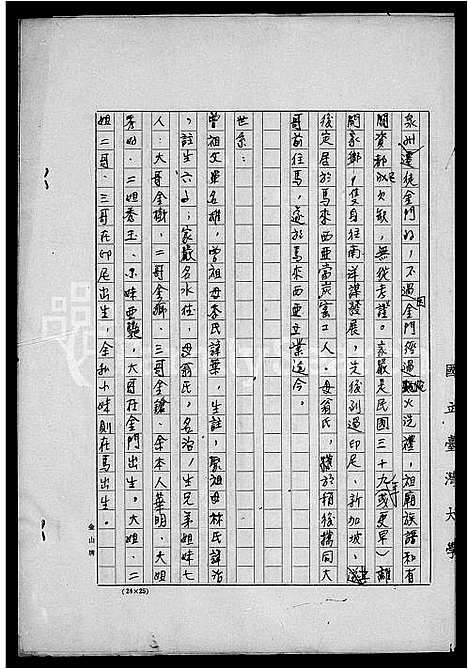 泉州遷徙金門的，不過因金門經過砲火洗禮，祖廟族譜和有
關資都成欠缺，無從考證。家嚴是民國三十九年(或更早)離
開家鄉，隻身往南洋謀發展，先後到過印尼、新加坡，
後定居於馬來西亞當炭窰工人。母翁氏，於稍後攜同大
哥前往馬，遂於馬來西亞立業迄今。
世系：
曾祖父單名雄，曾祖母李氏諱葉，生註，家祖母林氏諱治
，註生六子；家嚴名水任，母翁氏，名治，生兄弟姐妹七
人：大哥金樹，二哥金鄉、三哥金鎗、余本人華明、大姐
秀的、二姐春玉、小妹亞蘭，大哥在金門出生。大姐、二
姐二哥、三哥在印尼出生，余和小妹則在馬出生。
金山牌
(24×25)
國立臺灣大學